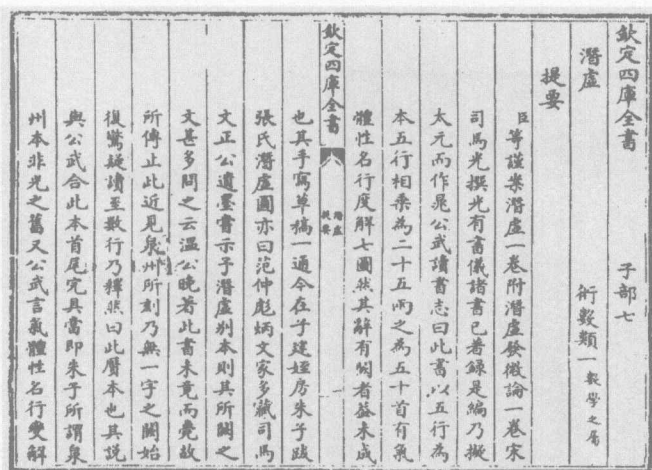 欽定四庫全書　子部七
潛虛　術數類一數學之屬
提要
臣等謹案潛虛一卷附潛虛發微論一卷宋
司馬光撰光有書儀諸書已著錄是編乃擬
太元而作晁公武讀書志曰此書以五行為
本五行相乘為二十五兩之為五十首有氣
體性名行度解七圖然其辭有闕者葢未成
欽定四庫全書　潛虛提要　一
也其手寫草稿一通今在子建姪房朱子跋
張氏潛虛圖亦曰范仲彪炳文家多藏司馬
文正公遺墨嘗示予潛虛别本則其所闕之
文甚多問之云溫公晚著此書未竟而薨故
所傳止此近見泉州所刻乃無一字之闕始
復驚疑讀至數行乃釋然曰此贋本也其說
與公武合此本首尾完具當即朱子所謂泉
州本非光之舊又公武言氣體性名行變解